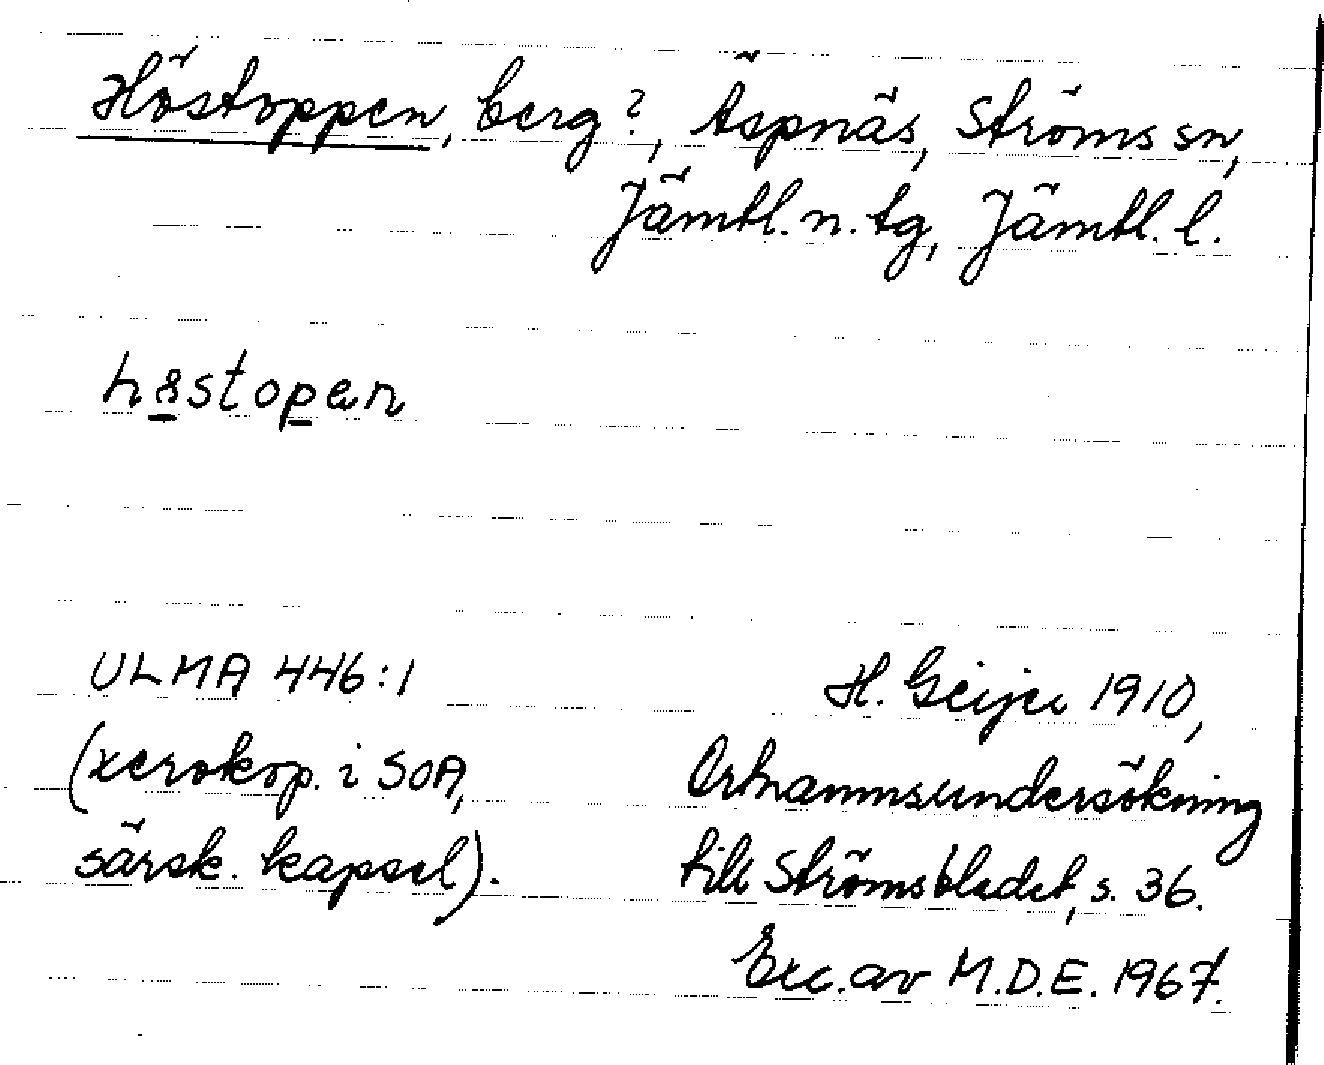 Höstoppen, berg?, Äspnäs, Ströms sn,
Jämtl. n. tg, Jämtl. l.
h8stopen
ULMA 446:1
(xerokop. i SOA,
särsk. kapsel).
H. Geijer 1910,
Ortnamnsundersökning
till Strömsbladet, s. 36.
Exc. av M.D.E. 1967.